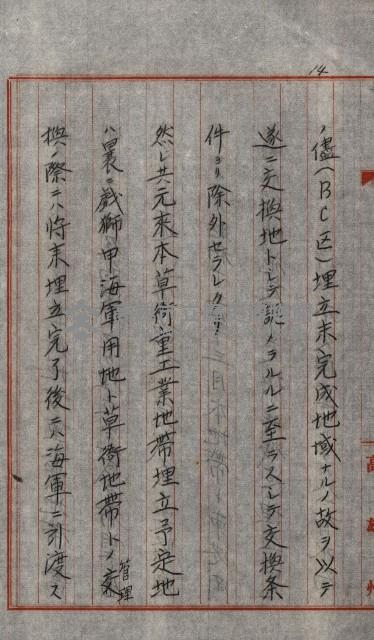 14
ノ儘(BC区)埋立未完成地域ナルノ故ヲ以テ
遂ニ交換地トシテ認メラルルニ至ラスシテ交換条
件ヨリ除外セラレタリ
然レ共元来本草衙重工業地帯埋立予定地
ハ曩ニ戯獅甲海軍用地ト草衙地帯トノ交
換ノ際ニハ将来埋立完了後ニハ海軍ニ引渡ス
管理
高雄州